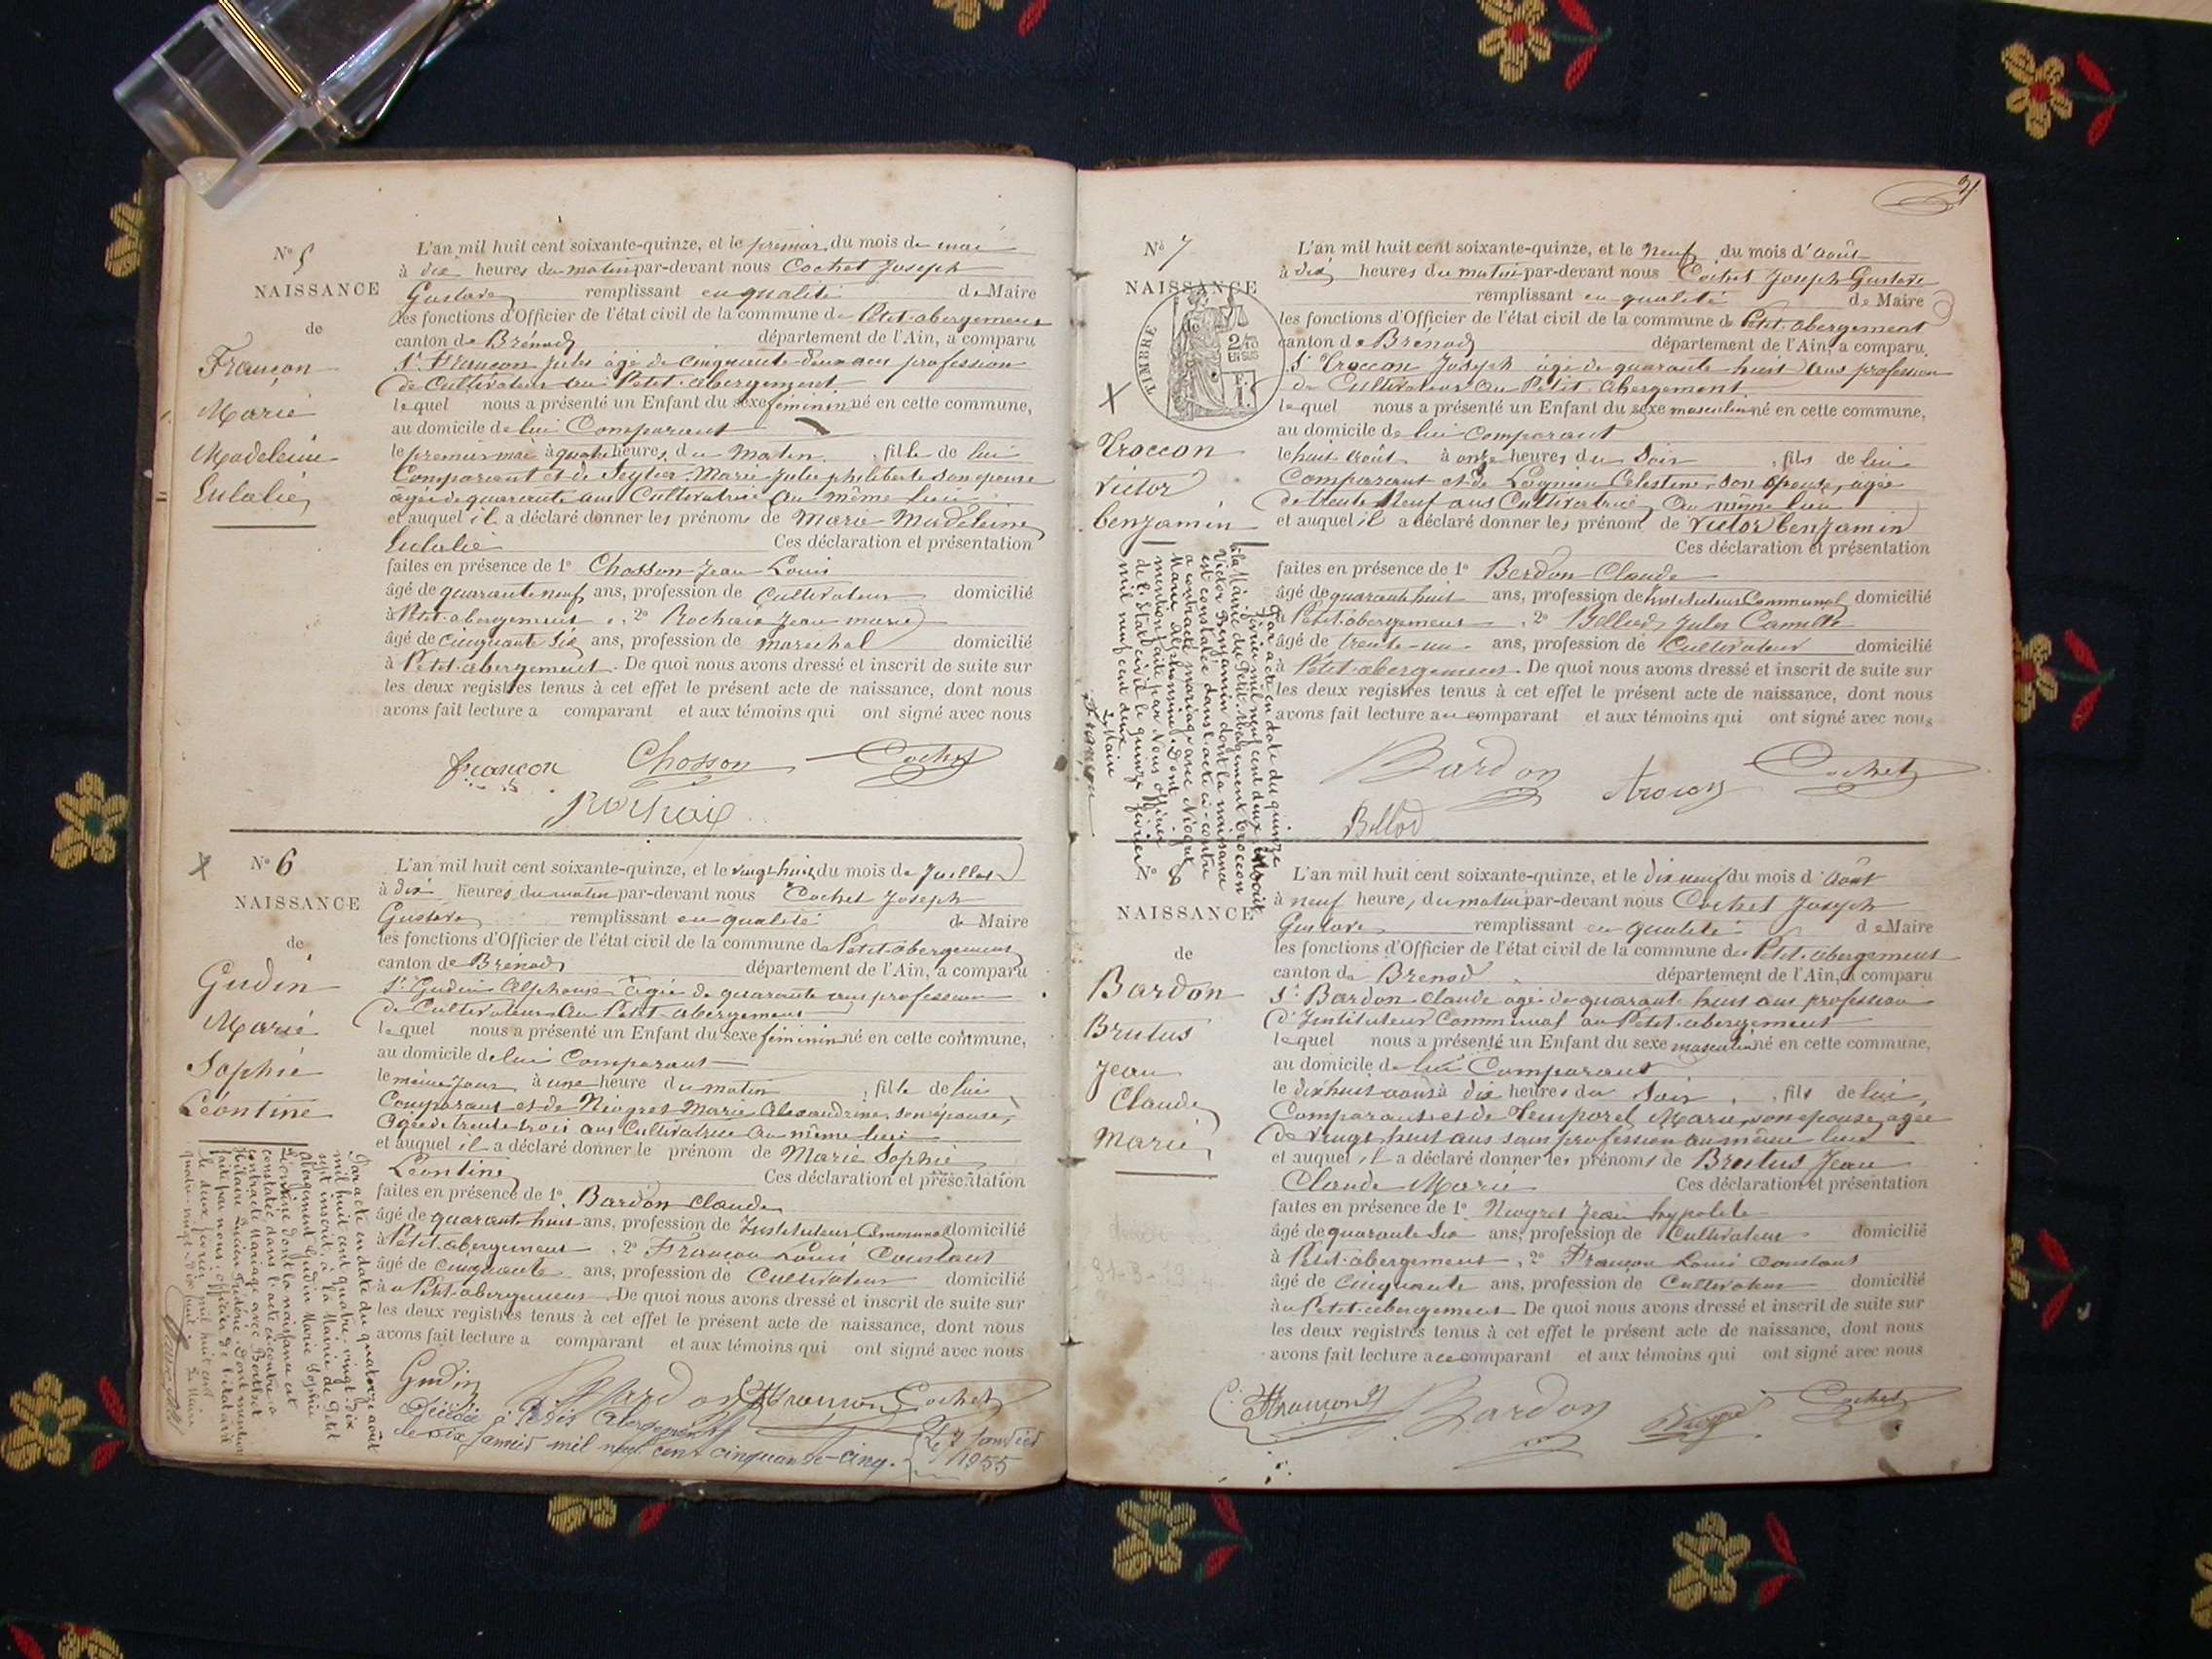 N° 5
NAISSANCE
de
Françon
Marie
Madeleine
Eulalie
L'an mil huit cent soixante-quinze, et le premier du mois de mai
à dix heures du matin par-devant nous Cochet Joseph
Gustave remplissant en qualité de Maire
les fonctions d'Officier de l'état civil de la commune de Petit-abergement
canton de Brénod département de l'Ain, a comparu
Sr Françon Jules âgé de cinquante-deux ans profession
de Cultivateur au Petit-abergement
lequel nous a présenté un Enfant du sexe féminin né en cette commune,
au domicile de lui Comparant
le premier mai à quatre heures du matin, fille de lui
Comparant et de Seytier Marie Julie philiberte son épouse
âgée de quarante ans Cultivatrice au même lieu
et auquel il a déclaré donner les prénoms de Marie Madeleine
Eulalie Ces déclaration et présentation
faites en présence de 1° Chosson Jean Louis
âgé de quarante neuf ans, profession de Cultivateur domicilié
à Petit-abergement, 2° Rochaix Jean marie
âgé de cinquante six ans, profession de marechal domicilié
à Petit-abergement. De quoi nous avons dressé et inscrit de suite sur
les deux registres tenus à cet effet le présent acte de naissance, dont nous
avons fait lecture a comparant et aux témoins qui ont signé avec nous
françon Chosson Cochet
Rochaix
N° 6
NAISSANCE
de
Gudin
Marie
Sophie
Léontine
L'an mil huit cent soixante-quinze, et le vingt huit du mois de Juillet
à dix heures du matin par-devant nous Cochet Joseph
Gustave remplissant en qualité de Maire
les fonctions d'Officier de l'état civil de la commune de Petit-abergement
canton de Brénod département de l'Ain, a comparu
Sr Gudin Alphonse âgé de quarante ans profession
de Cultivateur au Petit-abergement
lequel nous a présenté un Enfant du sexe féminin né en cette commune,
au domicile de lui Comparant
le même jour à une heure du matin, fille de lui
Comparant et de Niogret Marie Alexandrine, son épouse,
âgée de trente trois ans Cultivatrice au même lieu
et auquel il a déclaré donner le prénom de Marie Sophie
Léontine Ces déclaration et présentation
faites en présence de 1° Bardon Claude
âgé de quarante huit ans, profession de Instituteur Communal domicilié
à Petit-abergement, 2° Françon Louis Constant
âgé de cinquante ans, profession de Cultivateur domicilié
à u Petit-abergement De quoi nous avons dressé et inscrit de suite sur
les deux registres tenus à cet effet le présent acte de naissance, dont nous
avons fait lecture a comparant et aux témoins qui ont signé avec nous
Gudin Bardon Françon Cochet
Décédée à Petit Abergement
le six janvier mil neuf cent cinquante-cinq.
Le 7 janvier
1955
Par acte en date du quatorze août
mil huit cent quatre-vingt-dix
sept inscrit à la Mairie de Petit
Abergement Gudin Marie Sophie
Léontine dont la naissance est
constatée dans l'acte ci-contre a
contracté Mariage avec
Hilaire Lucien Dont mention
faite par nous officier de l'état civil
le deux février mil huit cent
quatre-vingt-dix huit
Le Maire
N° 7
NAISSANCE
de
TIMBRE
2/10
EN SUS
Troccon
Victor
benjamin
L'an mil huit cent soixante-quinze, et le neuf du mois d'août
à dix heures du matin par-devant nous Cochet Joseph Gustave
remplissant en qualité de Maire
les fonctions d'Officier de l'état civil de la commune de Petit-abergement
canton de Brénod département de l'Ain, a comparu
Sr Troccon Joseph âgé de quarante huit ans profession
de Cultivateur au Petit-abergement
lequel nous a présenté un Enfant du sexe masculin né en cette commune,
au domicile de lui comparant
le huit août à onze heures du soir, fils de lui
comparant et de Loignien Celestine, son épouse, âgée
de trente neuf ans Cultivatrice au même lieu
et auquel il a déclaré donner les prénom de Victor benjamin
Ces déclaration et présentation
faites en présence de 1° Bardon Claude
âgé de quarante huit ans, profession de Instituteur Communal domicilié
à Petit-abergement, 2° Bellod Jules Camille
âgé de trente-un ans, profession de Cultivateur domicilié
à Petit-abergement. De quoi nous avons dressé et inscrit de suite sur
les deux registres tenus à cet effet le présent acte de naissance, dont nous
avons fait lecture au comparant et aux témoins qui ont signé avec nous
Bardon Trocon Cochet
Bellod
Par acte en date du quinze
février mil neuf cent deux inscrit
à la Mairie du Petit Abergement Troccon
Victor Benjamin dont la naissance
est constatée dans l'acte ci-contre
a contracté mariage avec Niogret
Marie Alphonsine. Dont
mention faite par Nous officier
de l'Etat civil le quinze février
mil neuf cent deux
Le Maire
Françon
N° 8
NAISSANCE
de
Bardon
Brutus
Jean
Claude
Marie
L'an mil huit cent soixante-quinze, et le dix neuf du mois d'août
à neuf heures du matin par-devant nous Cochet Joseph
Gustave remplissant en qualité de Maire
les fonctions d'Officier de l'état civil de la commune de Petit-abergement
canton de Brenod département de l'Ain, a comparu
Sr Bardon Claude âgé de quarante huit ans profession
d'Instituteur Communal au Petit-abergement
lequel nous a présenté un Enfant du sexe masculin né en cette commune,
au domicile de lui Comparant
le dix huit août à dix heures du soir, fils de lui
Comparant et de Temporel Marie, son épouse, agée
de vingt huit ans sans profession au même lieu
et auquel il a déclaré donner les prénoms de Brutus Jean
Claude Marie Ces déclaration et présentation
faites en présence de 1° Niogret Jean hypolite
âgé de quarante six ans, profession de Cultivateur domicilié
à Petit-abergement, 2° Françon Louis Constant
âgé de cinquante ans, profession de Cultivateur domicilié
à u Petit-abergement De quoi nous avons dressé et inscrit de suite sur
les deux registres tenus à cet effet le présent acte de naissance, dont nous
avons fait lecture au comparant et aux témoins qui ont signé avec nous
Françon Bardon Niogret Cochet